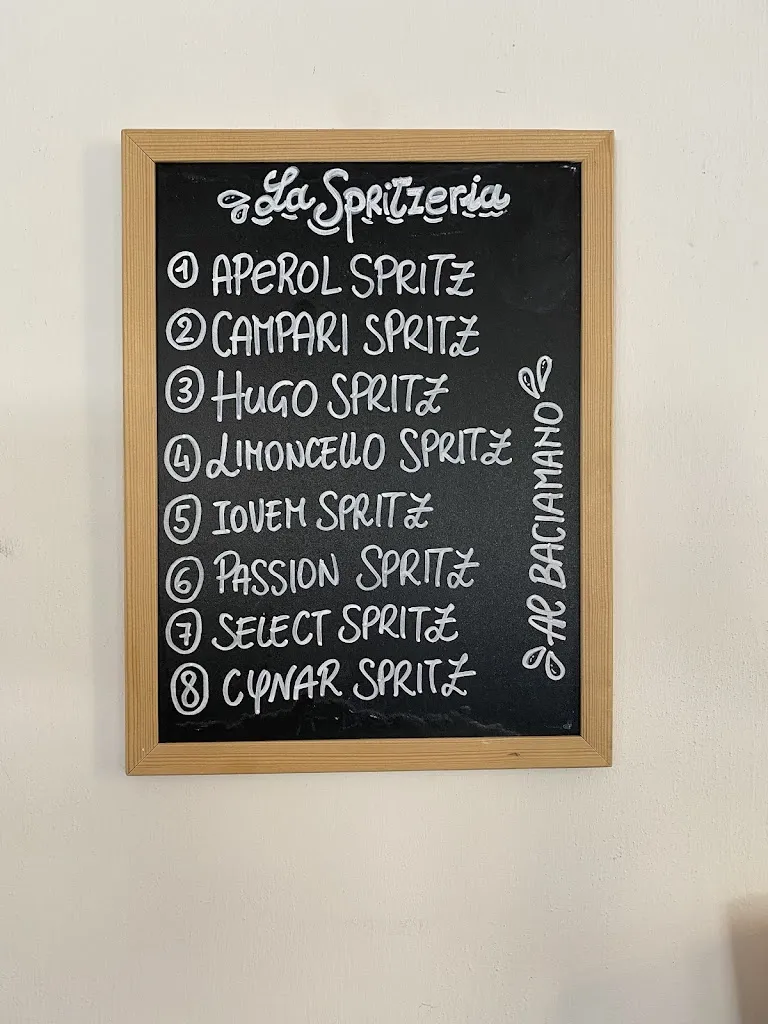 La Spritzeria
1 APEROL SPRITZ
2 CAMPARI SPRITZ
3 HUGO SPRITZ
4 LIMONCELLO SPRITZ
5 IOVEM SPRITZ
6 PASSION SPRITZ
7 SELECT SPRITZ
8 CYNAR SPRITZ
AR BACIAMANO